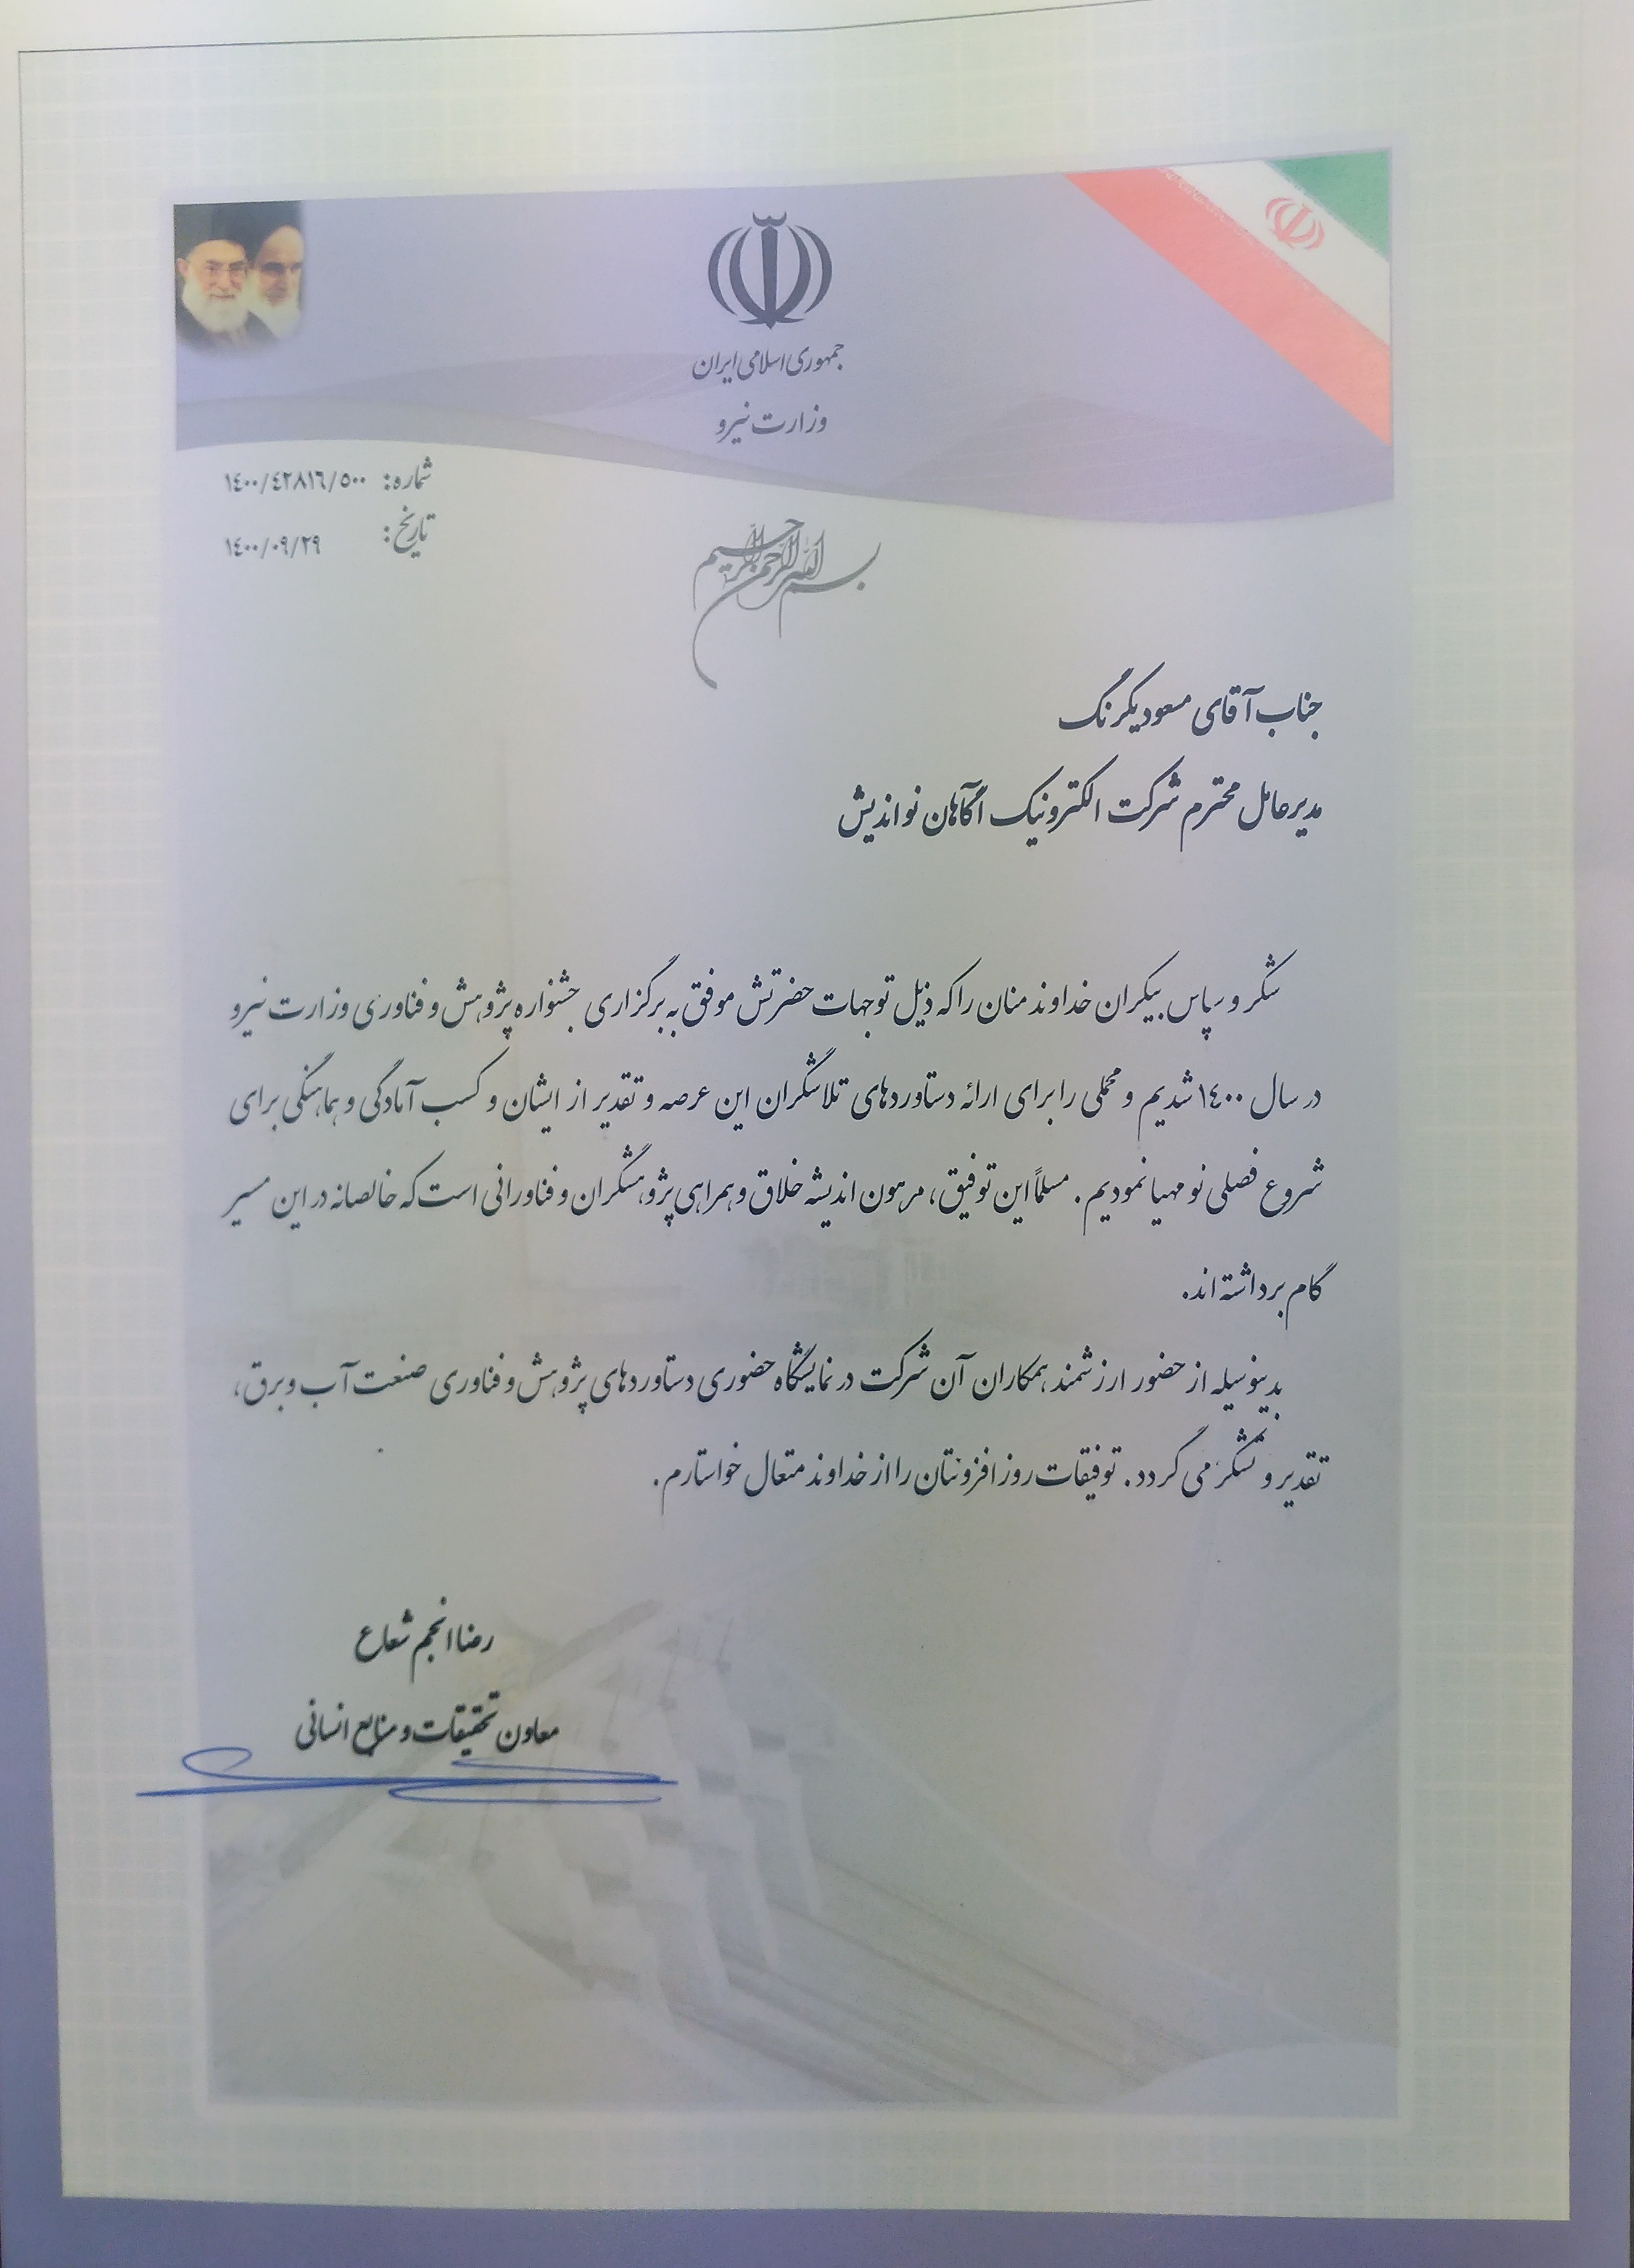 جمهوری اسلامی ایران
وزارت نیرو
شماره: ۱٤۰۰/٤۲۸۱٦/۵۰۰
تاریخ: ۱٤۰۰/۰۹/۲۹
بسم الله الرحمن الرحیم
جناب آقای مسعود یکرنگ
مدیرعامل محترم شرکت الکترونیک آگاهان نواندیش
شکر و سپاس بیکران خداوند منان را که ذیل توجهات حضرتش موفق به برگزاری جشنواره پژوهش و فناوری وزارت نیرو
در سال ۱٤۰۰ شدیم و محملی را برای ارائه دستاوردهای تلاشگران این عرصه و تقدیر از ایشان و کسب آمادگی و هماهنگی برای
شروع فصلی نو مهیا نمودیم. مسلماً این توفیق، مرهون اندیشه خلاق و همراهی پژوهشگران و فناورانی است که خالصانه در این مسیر
گام برداشته اند.
بدینوسیله از حضور ارزشمند همکاران آن شرکت در نمایشگاه حضوری دستاوردهای پژوهش و فناوری صنعت آب و برق،
تقدیر و تشکر می گردد. توفیقات روزافزونتان را از خداوند متعال خواستارم.
رضا انجم شعاع
معاون تحقیقات و منابع انسانی